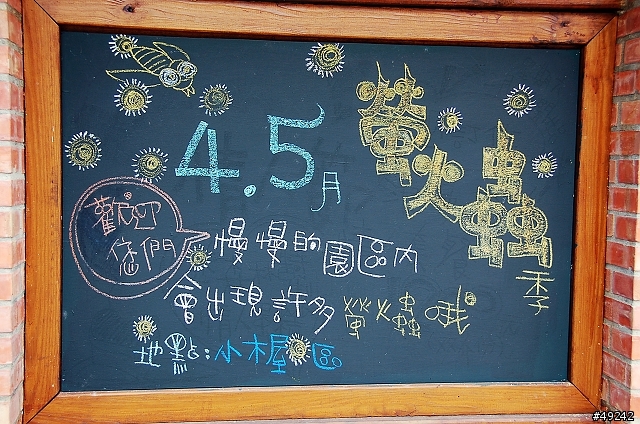 4.5月
螢火蟲季
歡迎
您們
慢慢的園區內
會出現許多螢火蟲哦
地點:小木屋區
#49242